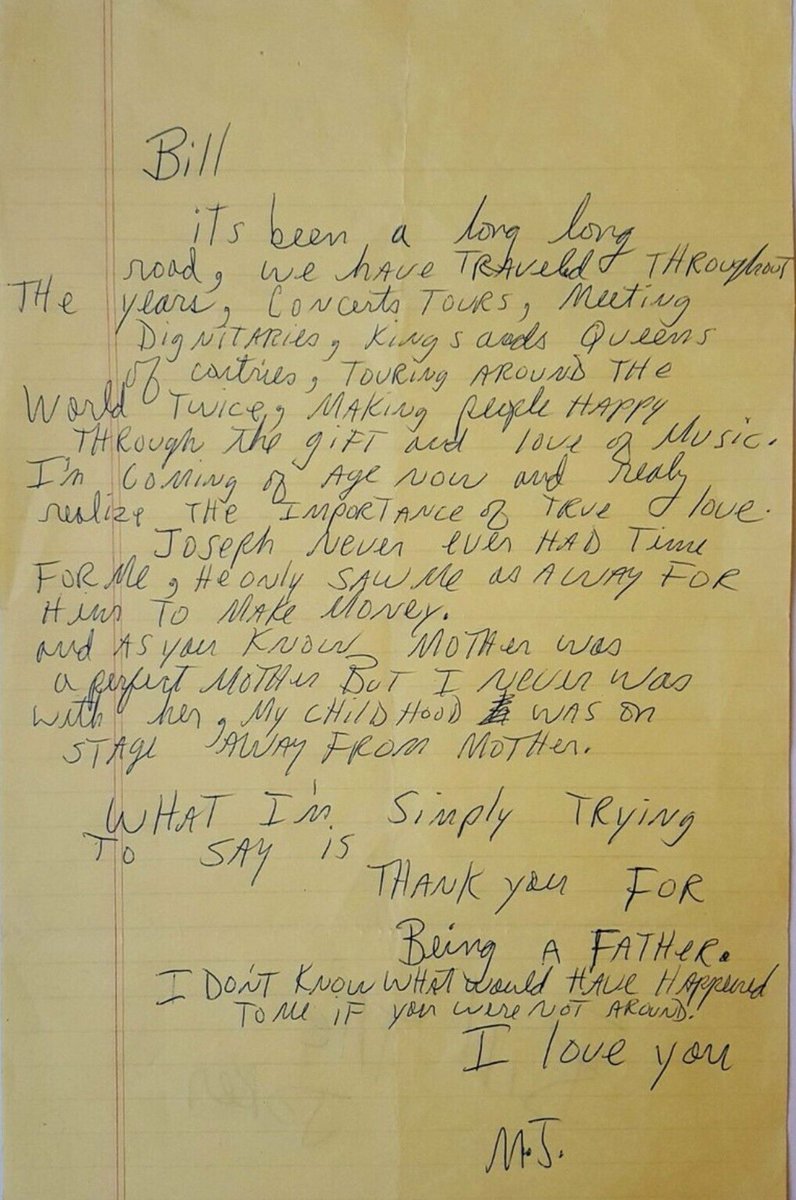 Bill
its been a long long
road, we HAVE TRAVELED THROUGHOUT
THe years, CONCERTS TOURS, MeeTing
DIGNITARIES, KINGS ands Queens
of contries, TOURING AROUND THe
World TWICE, MAKING people HAPPY
THROUGH the giFT and love of MUSIC.
I'm COMING of Age NOW and realy
realize THe IMPORTANCE of TRUE love.
JOSEPH Never ever HAD Time
FOR Me, He ONLY SAW Me as A WAY FOR
Him TO MAKE MONEY.
and AS you KNOW MOTHER was
a perfect MOTHER BUT I never was
with her, MY CHILDHOOD WAS ON
STAGE AWAY FROM MOTHER.
WHAT I'm Simply TRYING
TO SAY IS
THANK you FOR
Being A FATHER.
I DON'T KNOW WHAT would HAVE HAPPened
TO Me IF you were NOT AROUND.
I love you
M.J.